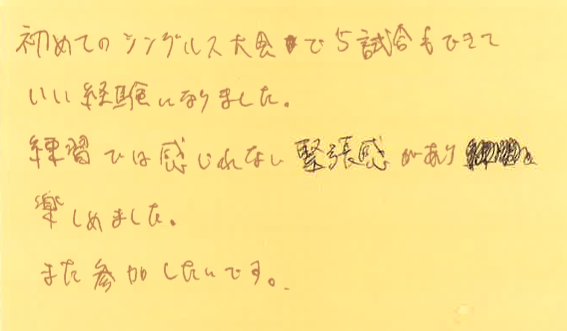 初めてのシングルス大会で5試合もできて
いい経験になりました。
練習では感じれない緊張感があり
楽しめました。
また参加したいです。